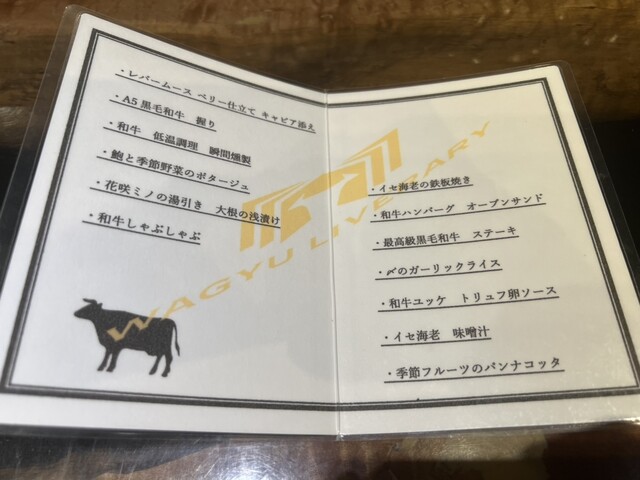 ・レバームース ベリー仕立て キャビア添え
・A5黒毛和牛 握り
・和牛 低温調理 瞬間燻製
・鮑と季節野菜のポタージュ
・花咲ミノの湯引き 大根の浅漬け
・和牛しゃぶしゃぶ
WAGYU LIVERARY
・イセ海老の鉄板焼き
・和牛ハンバーグ オープンサンド
・最高級黒毛和牛 ステーキ
・〆のガーリックライス
・和牛ユッケ トリュフ卵ソース
・イセ海老 味噌汁
・季節フルーツのパンナコッタ